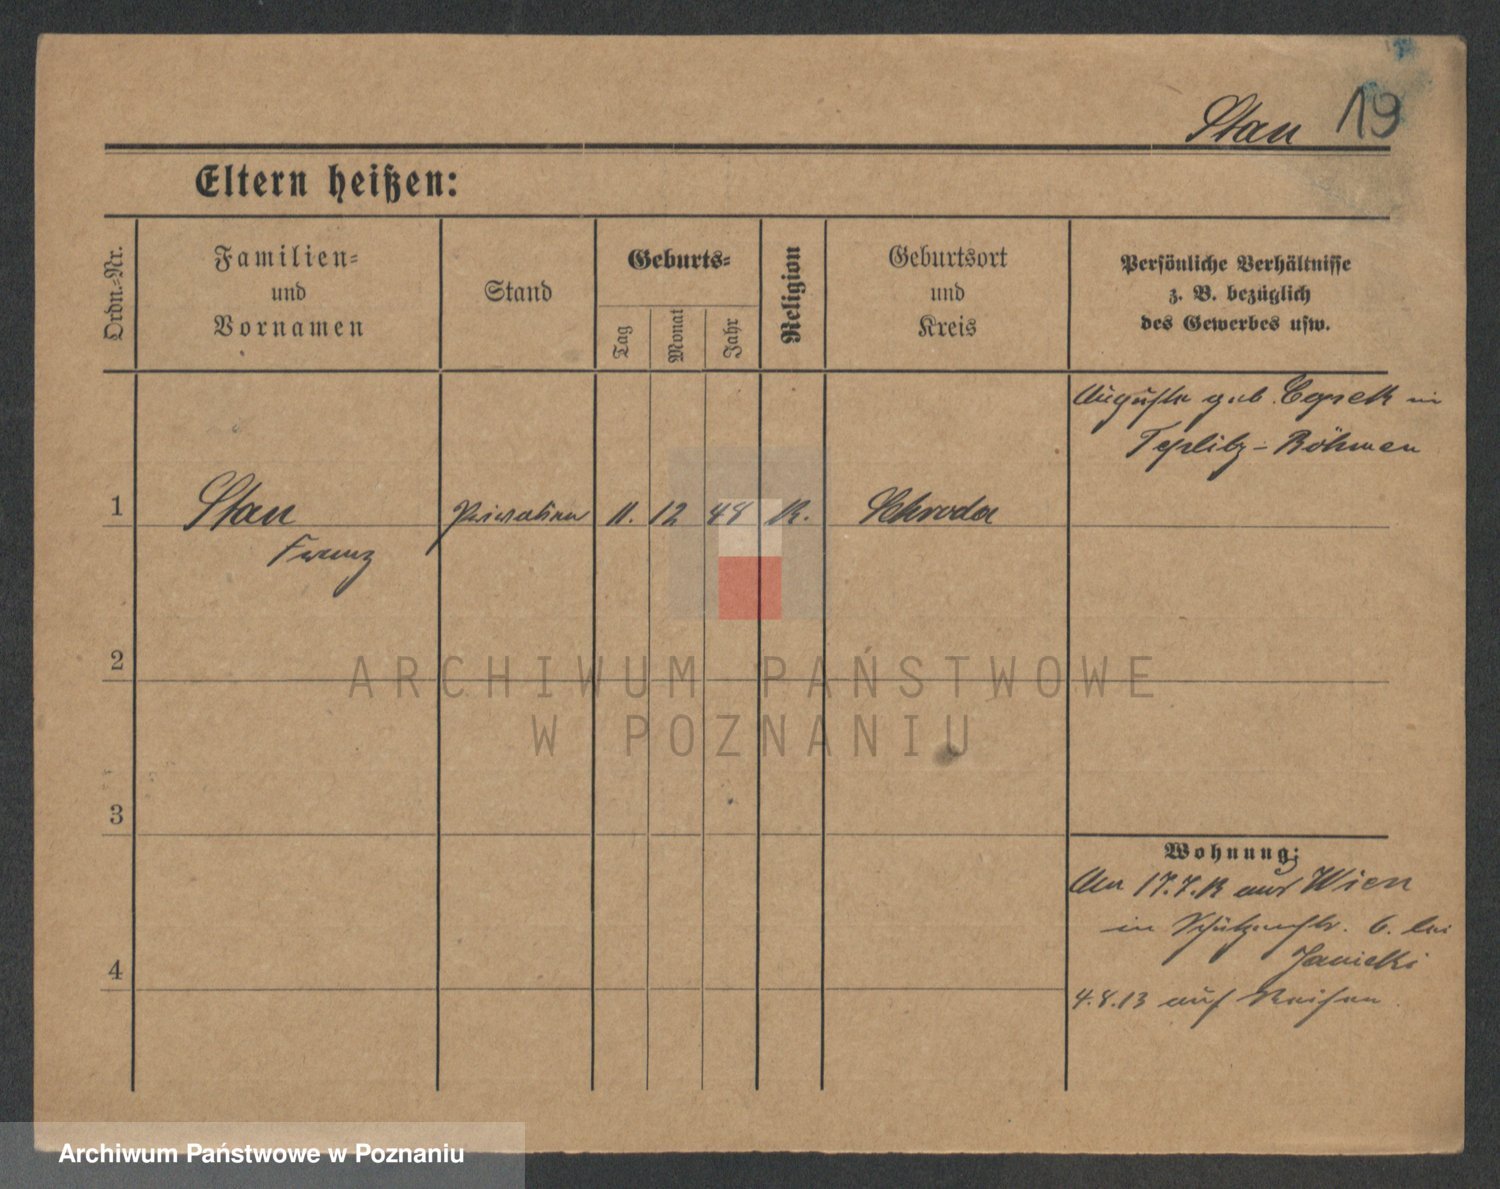 Stan 19
Eltern heißen:
Ordn.-Nr.
Familien-
und
Vornamen
Stand
Geburts-
Tag
Monat
Jahr
Religion
Geburtsort
und
Kreis
Persönliche Verhältnisse
z. B. bezüglich
des Gewerbes usw.
Auguste geb. in
Teplitz-Böhmen
1 Stan 11. 12 48 K. Schroda
Franz
2
ARCHIWUM PAŃSTWOWE
W POZNANIU
3
Wohnung:
17.7. aus Wien
in Schützenstr. 6. bei
Janicki
4
4.8.13 auf Reisen
Archiwum Państwowe w Poznaniu